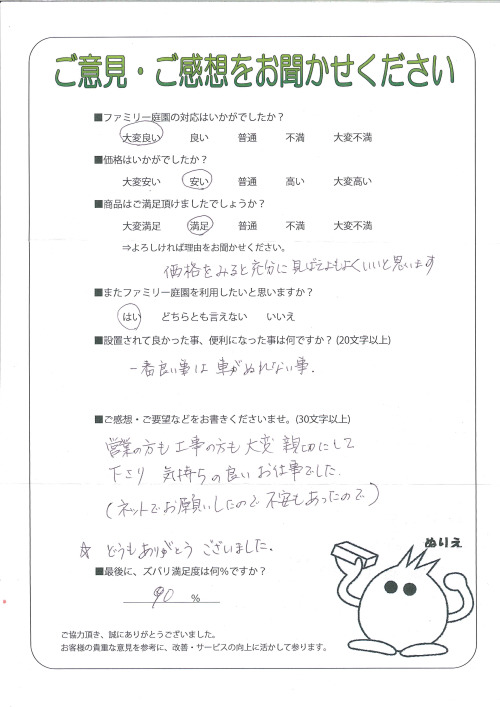 ご意見・ご感想をお聞かせください
■ファミリー庭園の対応はいかがでしたか？
大変良い 良い 普通 不満 大変不満
■価格はいかがでしたか？
大変安い 安い 普通 高い 大変高い
■商品はご満足頂けましたでしょうか？
大変満足 満足 普通 不満 大変不満
⇒よろしければ理由をお聞かせください。
価格をみると充分に見ばえもよくいいと思います
■またファミリー庭園を利用したいと思いますか？
はい どちらとも言えない いいえ
■設置されて良かった事、便利になった事は何ですか？(20文字以上)
一番良い事は車がぬれない事.
■ご感想・ご要望などをお書きくださいませ。(30文字以上)
営業の方も工事の方も大変親切にして
下さり 気持ちの良いお仕事でした.
(ネットでお願いしたので不安もあったので)
☆ どうもありがとうございました.
ぬりえ
■最後に、ズバリ満足度は何%ですか？
90 %
ご協力頂き、誠にありがとうございました。
お客様の貴重な意見を参考に、改善・サービスの向上に活かして参ります。